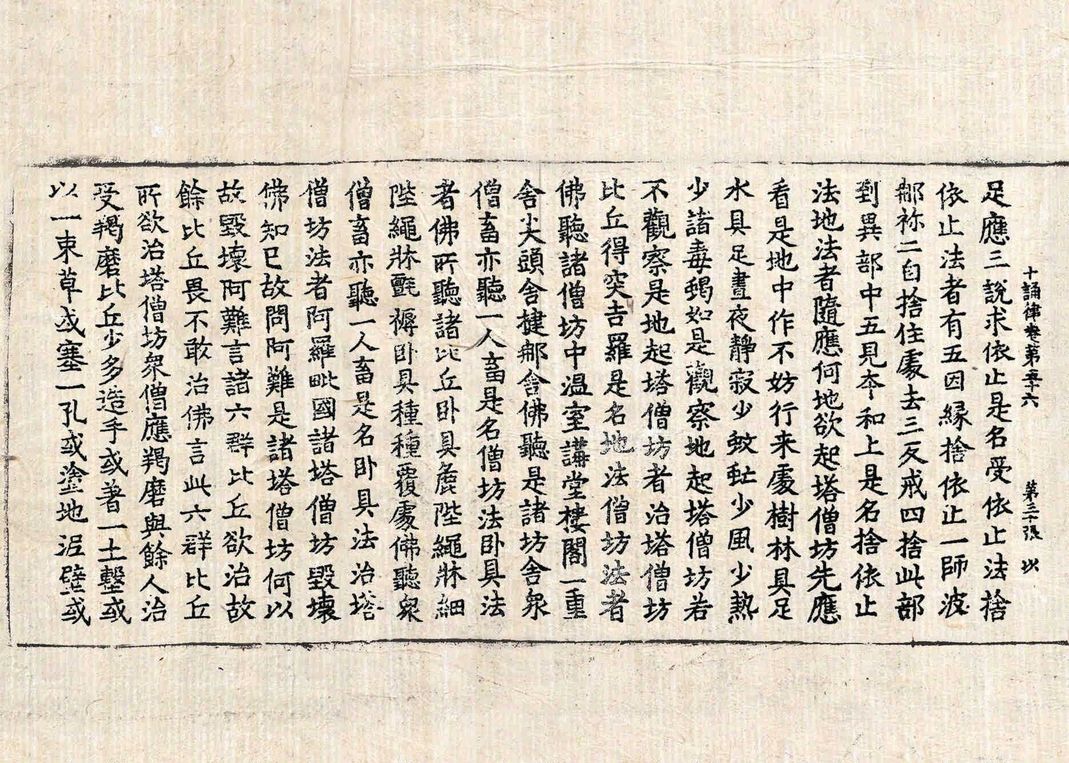 十誦律卷第五十六 第三十張 以
足應三說求依止是名受依止法捨
依止法者有五因緣捨依止一師波
那祢二自捨住處去三反戒四捨此部
到異部中五見夲和上是名捨依止
法地法者隨應何地欲起塔僧坊先應
看是地中作不妨行来處樹林具足
水具足晝夜靜寂少蚊虻少風少熱
少諸毒蝎如是觀察地起塔僧坊若
不觀察是地起塔僧坊者治塔僧坊
比丘得突吉羅是名地法僧坊法者
佛聽諸僧坊中温室講堂樓閣一重
舍尖頭舍揵郍舍佛聽是諸坊舍衆
僧畜亦聽一人畜是名僧坊法卧具法
者佛所聽諸比丘卧具麁陛繩牀細
陛繩牀㲲褥卧具種種覆處佛聽衆
僧畜亦聽一人畜是名卧具法治塔
僧坊法者阿羅毗國諸塔僧坊毀壞
佛知已故問阿難是諸塔僧坊何以
故毀壞阿難言諸六群比丘欲治故
餘比丘畏不敢治佛言此六群比丘
所欲治塔僧坊衆僧應羯磨與餘人治
受羯磨比丘少多造手或著一土墼或
以一束草或塞一孔或塗地泥壁或